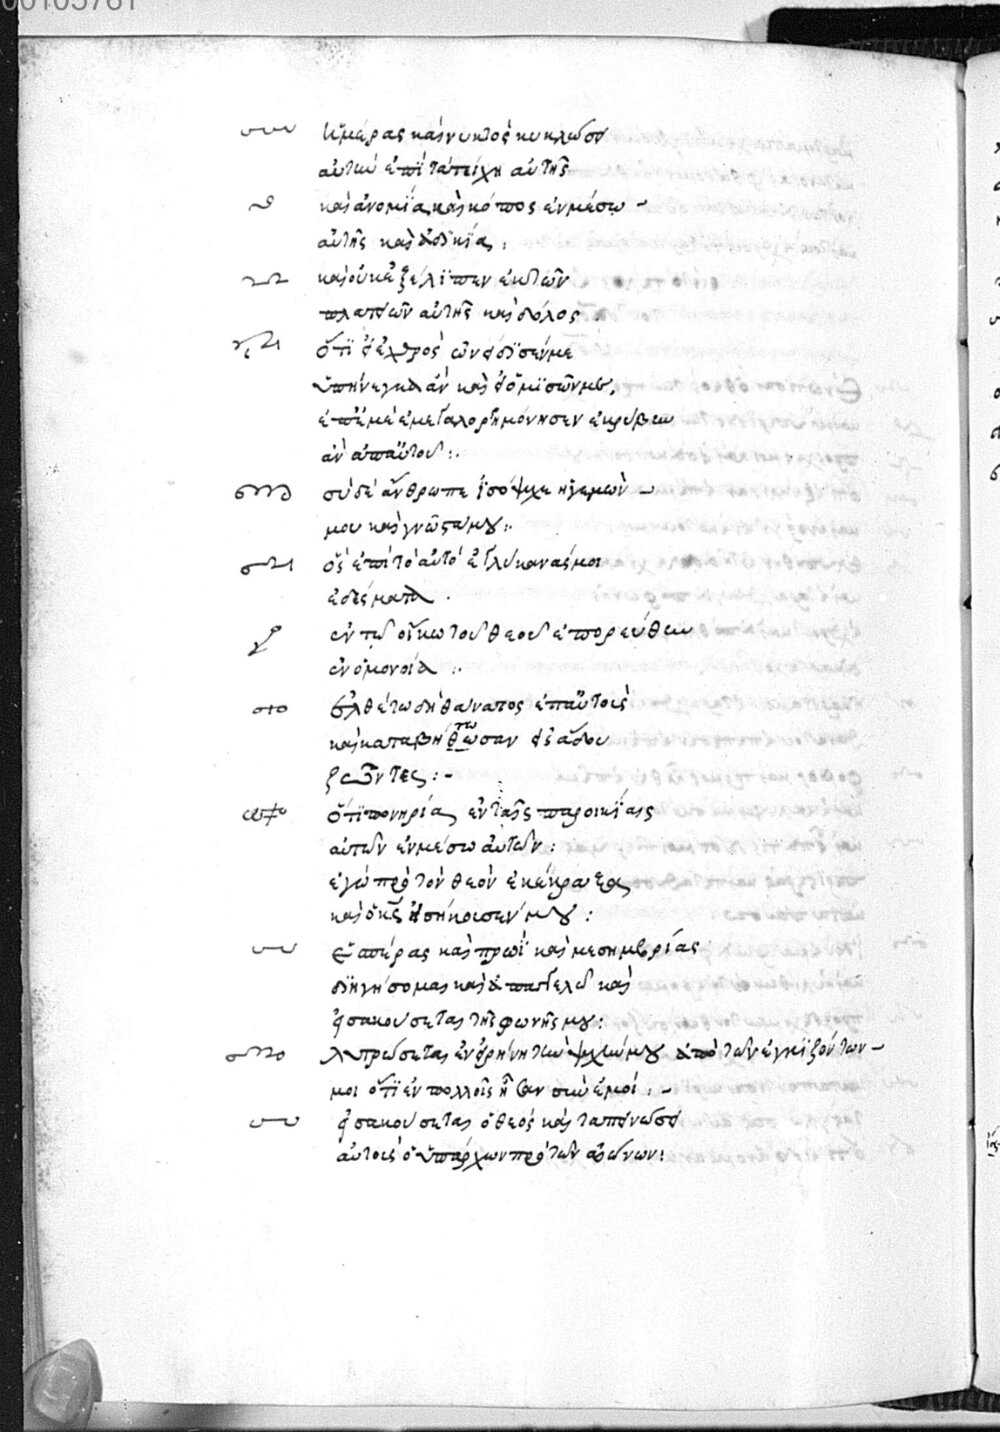 00105761
ἡμέρας καὶ νυκτὸς κυκλώσει
αὐτὴν ἐπὶ τὰ τείχη αὐτῆς
καὶ ἀνομία καὶ κόπος ἐν μέσω
αὐτῆς καὶ ἀδικία.
καὶ οὐκ ἐξέλιπεν ἐκ τῶν
πλατειῶν αὐτῆς καὶ δόλος.
ὅτι εἰ ἐχθρὸς ὠνείδισέν με
ὑπήνεγκα ἂν καὶ εἰ ὁ μισῶν με,
ἐπ' ἐμὲ ἐμεγαλορημόνησεν ἐκρύβην
ἂν ἀπ' αὐτοῦ:.
σὺ δὲ ἄνθρωπε ἰσόψυχε ἡγεμὼν
μου καὶ γνωστά μου:.
ὃς ἐπὶ τὸ αὐτὸ ἐγλύκανάς μοι
ἐδέσματα.
ἐν τῶ οἴκω τοῦ θεοῦ ἐπορεύθην
ἐν ὁμονοία:.
ἐλθέτω δὴ θάνατος ἐπ' αὐτοὺς
καὶ καταβήτωσαν εἰς ἅδου
ζῶντες:-
ὅτι πονηρία ἐν ταῖς παροικίαις
αὐτῶν ἐν μέσω αὐτῶν:
ἐγὼ πρὸ τὸν θεὸν ἐκέκραξα
καὶ ὁ κς εἰσήκουσέν μου:
ἑσπέρας καὶ πρωῒ καὶ μεσημβρίας
διηγήσομαι καὶ ἀπαγγελῶ καὶ
εἰσακούσεται τῆς φωνῆς μου:
λυτρώσεται ἐν εἰρήνη τὴν ψυχήν μου ἀπὸ τῶν ἐγγιζόντων
μοι ὅτι ἐν πολλοῖς ἦσαν σὺν ἐμοί:-
εἰσακούσεται ὁ θεὸς καὶ ταπεινώσει
αὐτοὺς ὁ ὑπάρχων πρὸ τῶν αἰώνων: